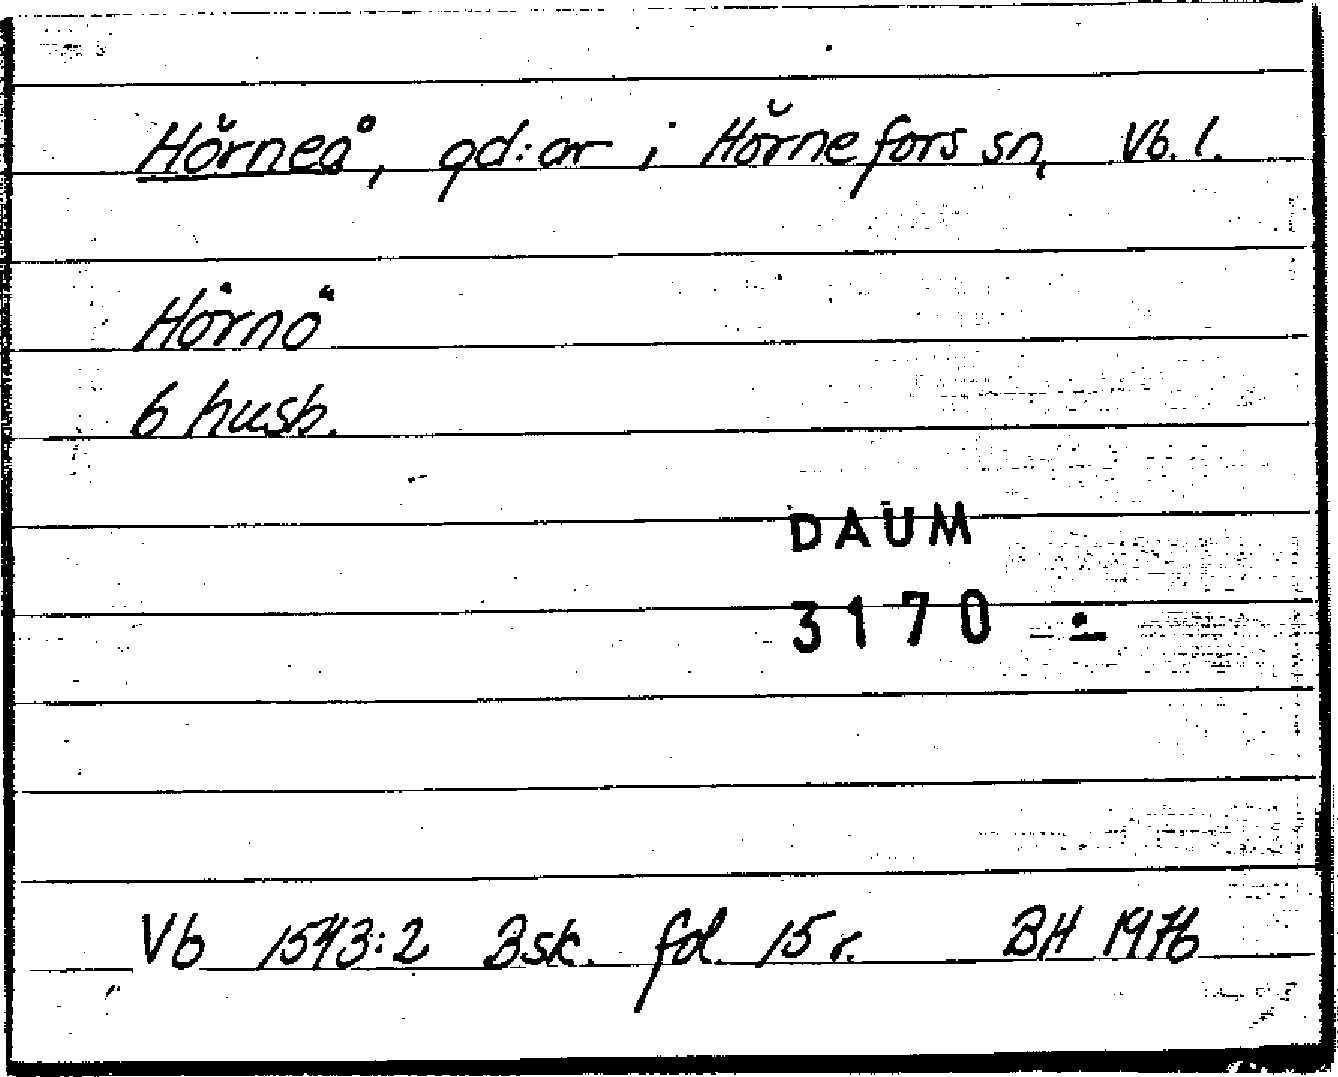 Hörneå, gd:ar i Hörnefors sn, Vb. l.
Hörnö
6 husb.
DAUM
3170
Vb 1543:2 Bsk. fol. 15 r. BH 1976